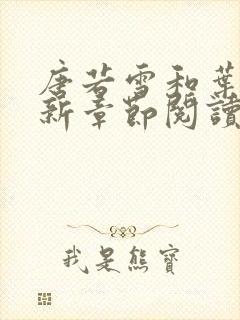 唐若雪和葉
新章節閱讀
我是熊寶